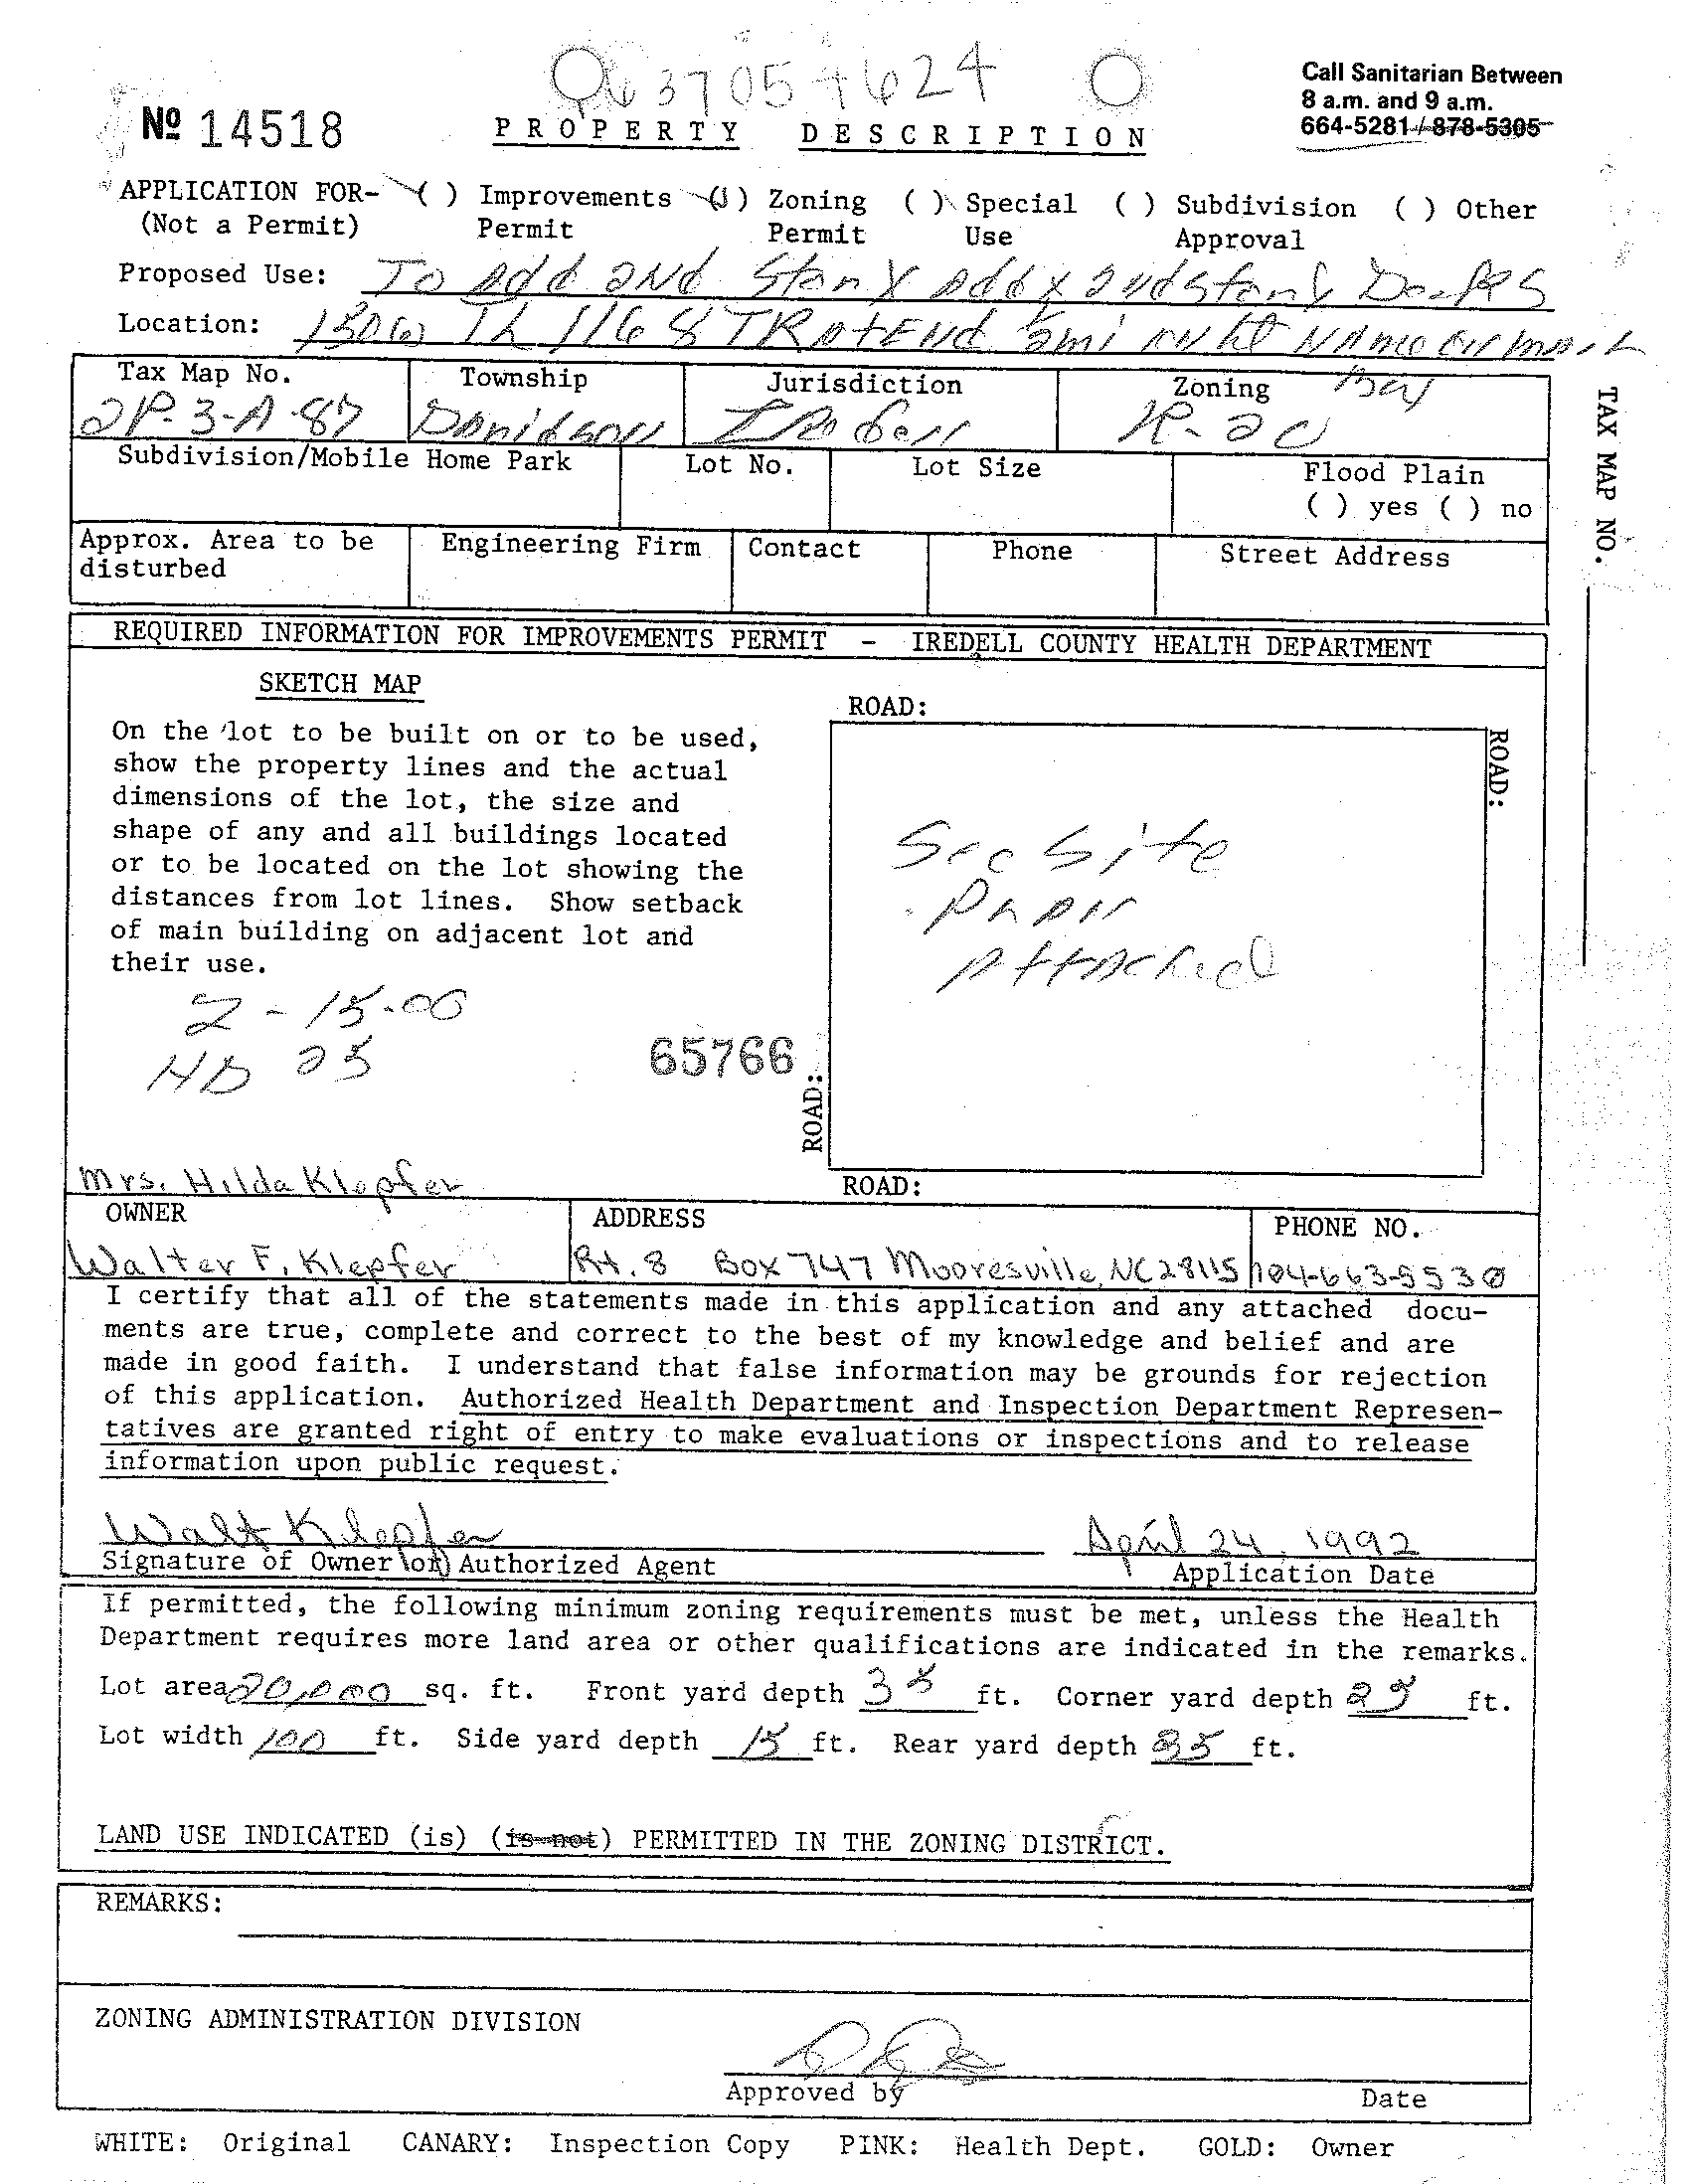 Call Sanitarian Between
8 a.m. and 9 a.m.
664-5281 / 878-5305
Nº 14518
PROPERTY DESCRIPTION
APPLICATION FOR- ( ) Improvements ( ) Zoning ( ) Special ( ) Subdivision ( ) Other
(Not a Permit) Permit Permit Use Approval
Proposed Use: To Add 2nd Story Add x 2nd story Decks
Location: 150W TL 1168 TR at End
Tax Map No. Township Jurisdiction Zoning
2P-3-A-87 Davidson Iredell R-20
Subdivision/Mobile Home Park Lot No. Lot Size Flood Plain
( ) yes ( ) no
Approx. Area to be disturbed Engineering Firm Contact Phone Street Address
TAX MAP NO.
REQUIRED INFORMATION FOR IMPROVEMENTS PERMIT - IREDELL COUNTY HEALTH DEPARTMENT
SKETCH MAP
ROAD:
On the lot to be built on or to be used,
show the property lines and the actual
dimensions of the lot, the size and
shape of any and all buildings located
or to be located on the lot showing the
distances from lot lines. Show setback
of main building on adjacent lot and
their use.
ROAD:
See Site
Plan
Attached
Z - 15.00
HD 25
65766
ROAD:
ROAD:
Mrs. Hilda Klepfer
OWNER ADDRESS PHONE NO.
Walter F. Klepfer Rt. 8 Box 747 Mooresville, NC 28115 704-663-5530
I certify that all of the statements made in this application and any attached docu-
ments are true, complete and correct to the best of my knowledge and belief and are
made in good faith. I understand that false information may be grounds for rejection
of this application. Authorized Health Department and Inspection Department Represen-
tatives are granted right of entry to make evaluations or inspections and to release
information upon public request.
Walt Klepfer April 24, 1992
Signature of Owner or Authorized Agent Application Date
If permitted, the following minimum zoning requirements must be met, unless the Health
Department requires more land area or other qualifications are indicated in the remarks.
Lot area 20,000 sq. ft. Front yard depth 35 ft. Corner yard depth 25 ft.
Lot width 100 ft. Side yard depth 15 ft. Rear yard depth 35 ft.
LAND USE INDICATED (is) (is not) PERMITTED IN THE ZONING DISTRICT.
REMARKS:
ZONING ADMINISTRATION DIVISION
Approved by Date
WHITE: Original CANARY: Inspection Copy PINK: Health Dept. GOLD: Owner